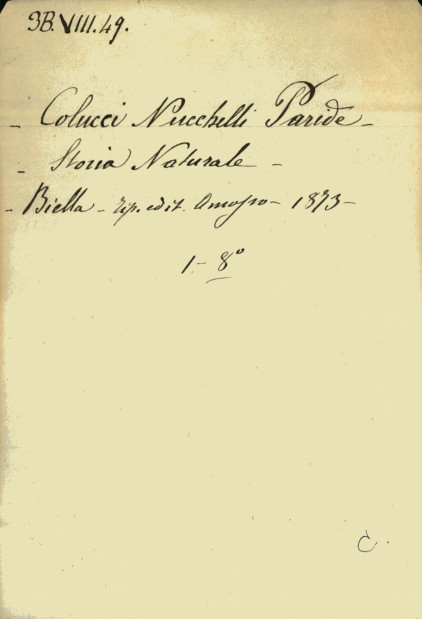 3B. VIII. 49.
- Colucci Nucchelli Paride -
- Storia Naturale -
- Biella - tip. edit. Amosso - 1873 -
1 - 8°
C.